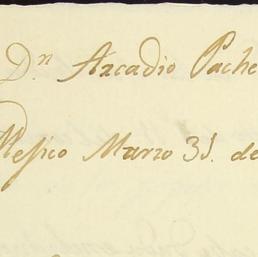 Dn Arcadio Pache
Mexico Marzo 31. de